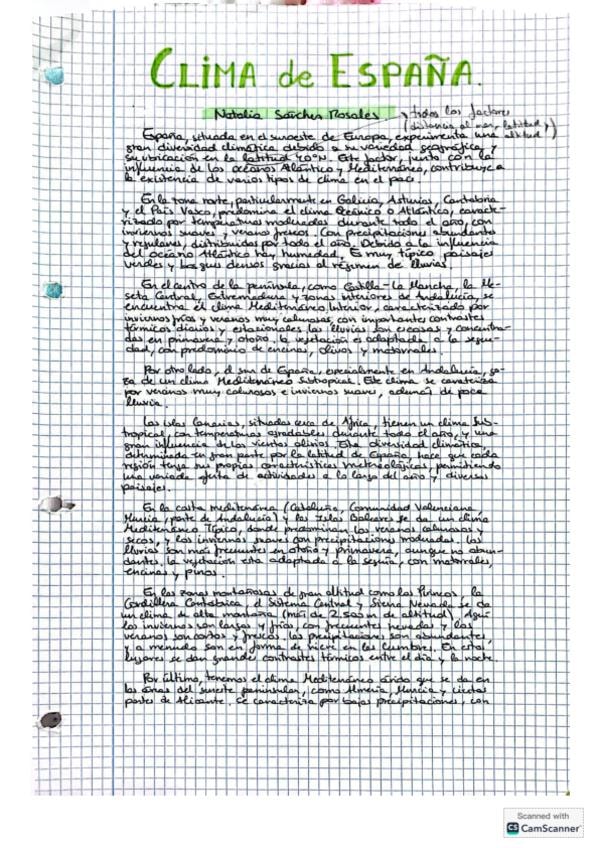 CLIMA de ESPAÑA.
Natalia Sánchez Rosales.
→ todos los factores
(distancia al mar, latitud y altitud)
España, situada en el suroeste de Europa, experimenta una
gran diversidad climática debido a su variedad geográfica y
su ubicación en la latitud 40°N. Este factor, junto con la
influencia de los océanos Atlántico y Mediterráneo, contribuye a
la existencia de varios tipos de clima en el país.
En la zona norte, particularmente en Galicia, Asturias, Cantabria
y el País Vasco, predomina el clima Oceánico o Atlántico, caracte-
rizado por temperaturas moderadas durante todo el año, con
inviernos suaves y veranos frescos. Con precipitaciones abundantes
y regulares, distribuidas por todo el año. Debido a la influencia
del océano Atlántico hay humedad. Es muy típico paisajes
verdes y bosques densos gracias al régimen de lluvias.
En el centro de la península, como Castilla-La Mancha, la Me-
seta Central, Extremadura y zonas interiores de Andalucía, se
encuentra el clima Mediterráneo Interior, caracterizado por
inviernos fríos y veranos muy calurosos, con importantes contrastes
térmicos diarios y estacionales las lluvias son escasas y concentra-
das en primavera y otoño. la vegetación es adaptada a la seque-
dad, con predominio de encinas, olivos y matorrales.
Por otro lado, el sur de España, especialmente en Andalucía, go-
za de un clima Mediterráneo Subtropical. Este clima se caracteriza
por veranos muy calurosos e inviernos suaves, además de poca
lluvia.
Las islas Canarias, situadas cerca de África, tienen un clima Sub-
tropical, con temperaturas agradables durante todo el año, y una
gran influencia de los vientos alisios. Esta diversidad climática,
determinada en gran parte por la latitud de España, hace que cada
región tenga sus propias características meteorológicas, permitiendo
una variada oferta de actividades a lo largo del año y diversos
paisajes.
En la costa mediterránea (Cataluña, Comunidad Valenciana,
Murcia, parte de Andalucía) y las Islas Baleares se da un clima
Mediterráneo Típico, donde predominan los veranos calurosos y
secos, y los inviernos suaves con precipitaciones moderadas. Las
lluvias son más frecuentes en otoño y primavera, aunque no abun-
dantes. la vegetación esta adaptada a la sequía, con matorrales,
encinas y pinos.
En las zonas montañosas de gran altitud como los Pirineos, la
Cordillera Cantábrica, el Sistema Central y Sierra Nevada se da
un clima de alta montaña (más de 2.500m de altitud). Aquí
los inviernos son largos y fríos, con frecuentes nevadas y los
veranos son cortos y frescos. las precipitaciones son abundantes,
y a menudo son en forma de nieve en las cumbres. En estos
lugares se dan grandes contrastes térmicos entre el día y la noche.
Por último, tenemos el clima Mediterráneo árido que se da en
las áreas del sureste peninsular, como Almería, Murcia y ciertas
partes de Alicante. Se caracteriza por bajas precipitaciones, con
Scanned with
CS CamScanner